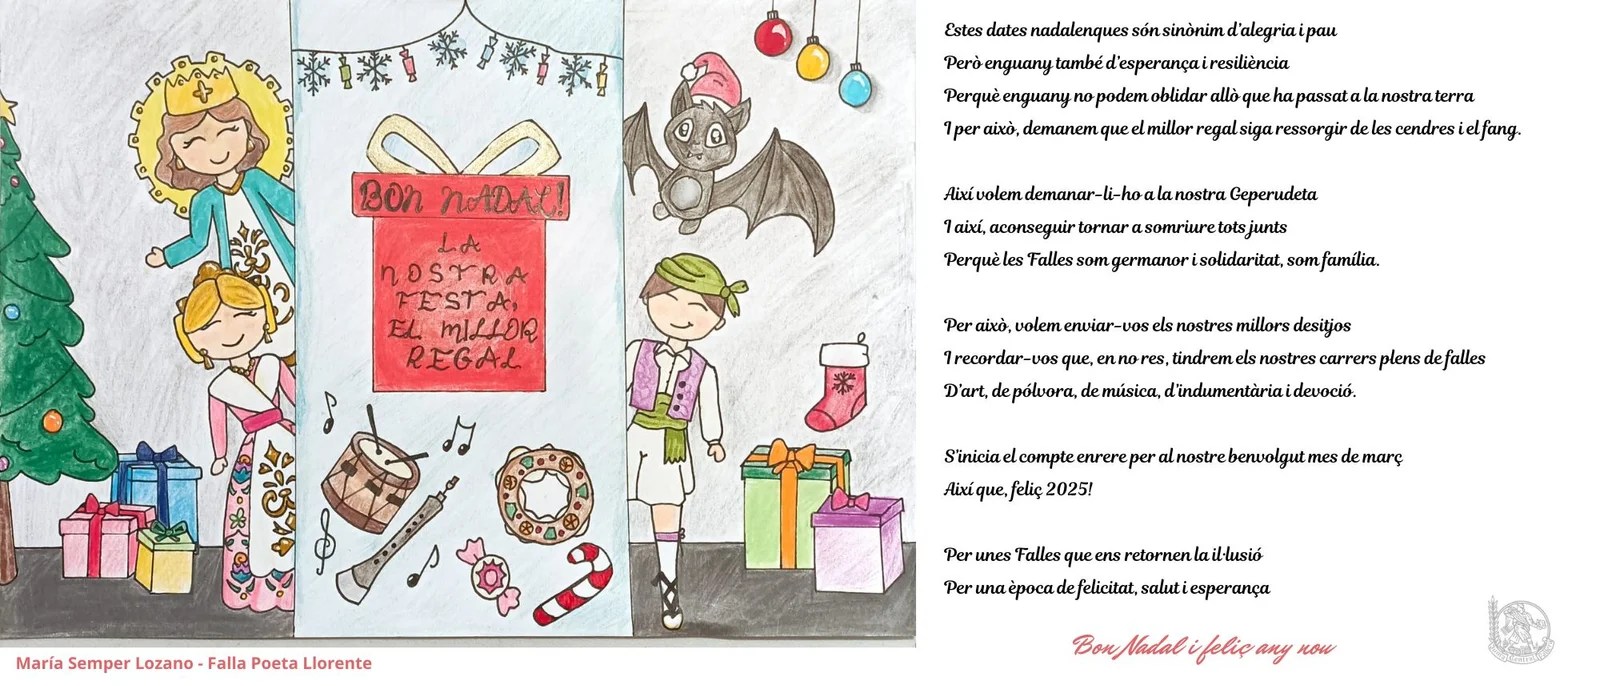 BON NADAL!
LA
NOSTRA
FESTA,
EL MILLOR
REGAL
María Semper Lozano - Falla Poeta Llorente
Estes dates nadalenques són sinònim d'alegria i pau
Però enguany també d'esperança i resiliència
Perquè enguany no podem oblidar allò que ha passat a la nostra terra
I per això, demanem que el millor regal siga ressorgir de les cendres i el fang.
Així volem demanar-li-ho a la nostra Geperudeta
I així, aconseguir tornar a somriure tots junts
Perquè les Falles som germanor i solidaritat, som família.
Per això, volem enviar-vos els nostres millors desitjos
I recordar-vos que, en no res, tindrem els nostres carrers plens de falles
D'art, de pólvora, de música, d'indumentària i devoció.
S'inicia el compte enrere per al nostre benvolgut mes de març
Així que, feliç 2025!
Per unes Falles que ens retornen la il·lusió
Per una època de felicitat, salut i esperança
Bon Nadal i feliç any nou